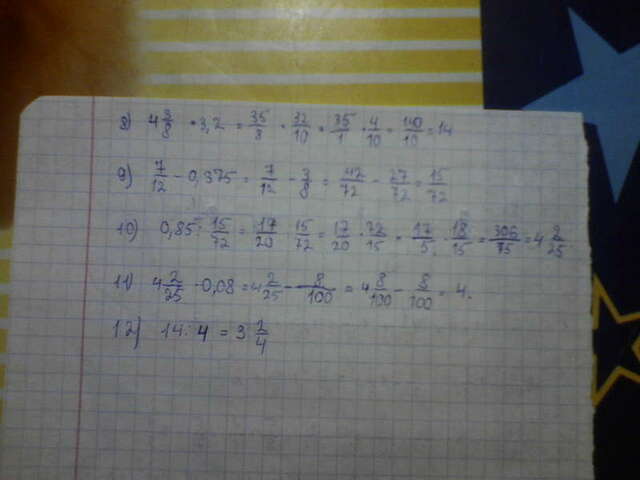 8) 4 3/8 · 3,2 = 35/8 · 32/10 = 35/1 · 4/10 = 140/10 = 14
9) 7/12 - 0,375 = 7/12 - 3/8 = 42/72 - 27/72 = 15/72
10) 0,85 : 15/72 = 17/20 : 15/72 = 17/20 · 72/15 = 17/5 · 18/15 = 306/75 = 4 2/25
11) 4 2/25 - 0,08 = 4 2/25 - 8/100 = 4 8/100 - 8/100 = 4.
12) 14 : 4 = 3 2/4